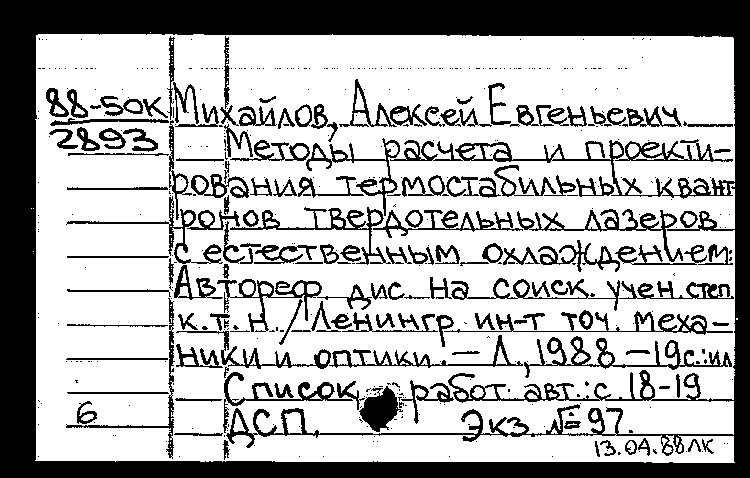 88-50К Михайлов, Алексей Евгеньевич.
2893 Методы расчета и проекти-
рования термостабильных квант
ронов твердотельных лазеров
с естественным охлаждением:
Автореф. дис. на соиск. учен. степ.
к.т.н. / Ленингр. ин-т точ. меха-
ники и оптики. — Л., 1988 — 19с.: ил
Список работ авт.: с. 18-19
6 ДСП. Экз. №97.
13.04.88 ЛК